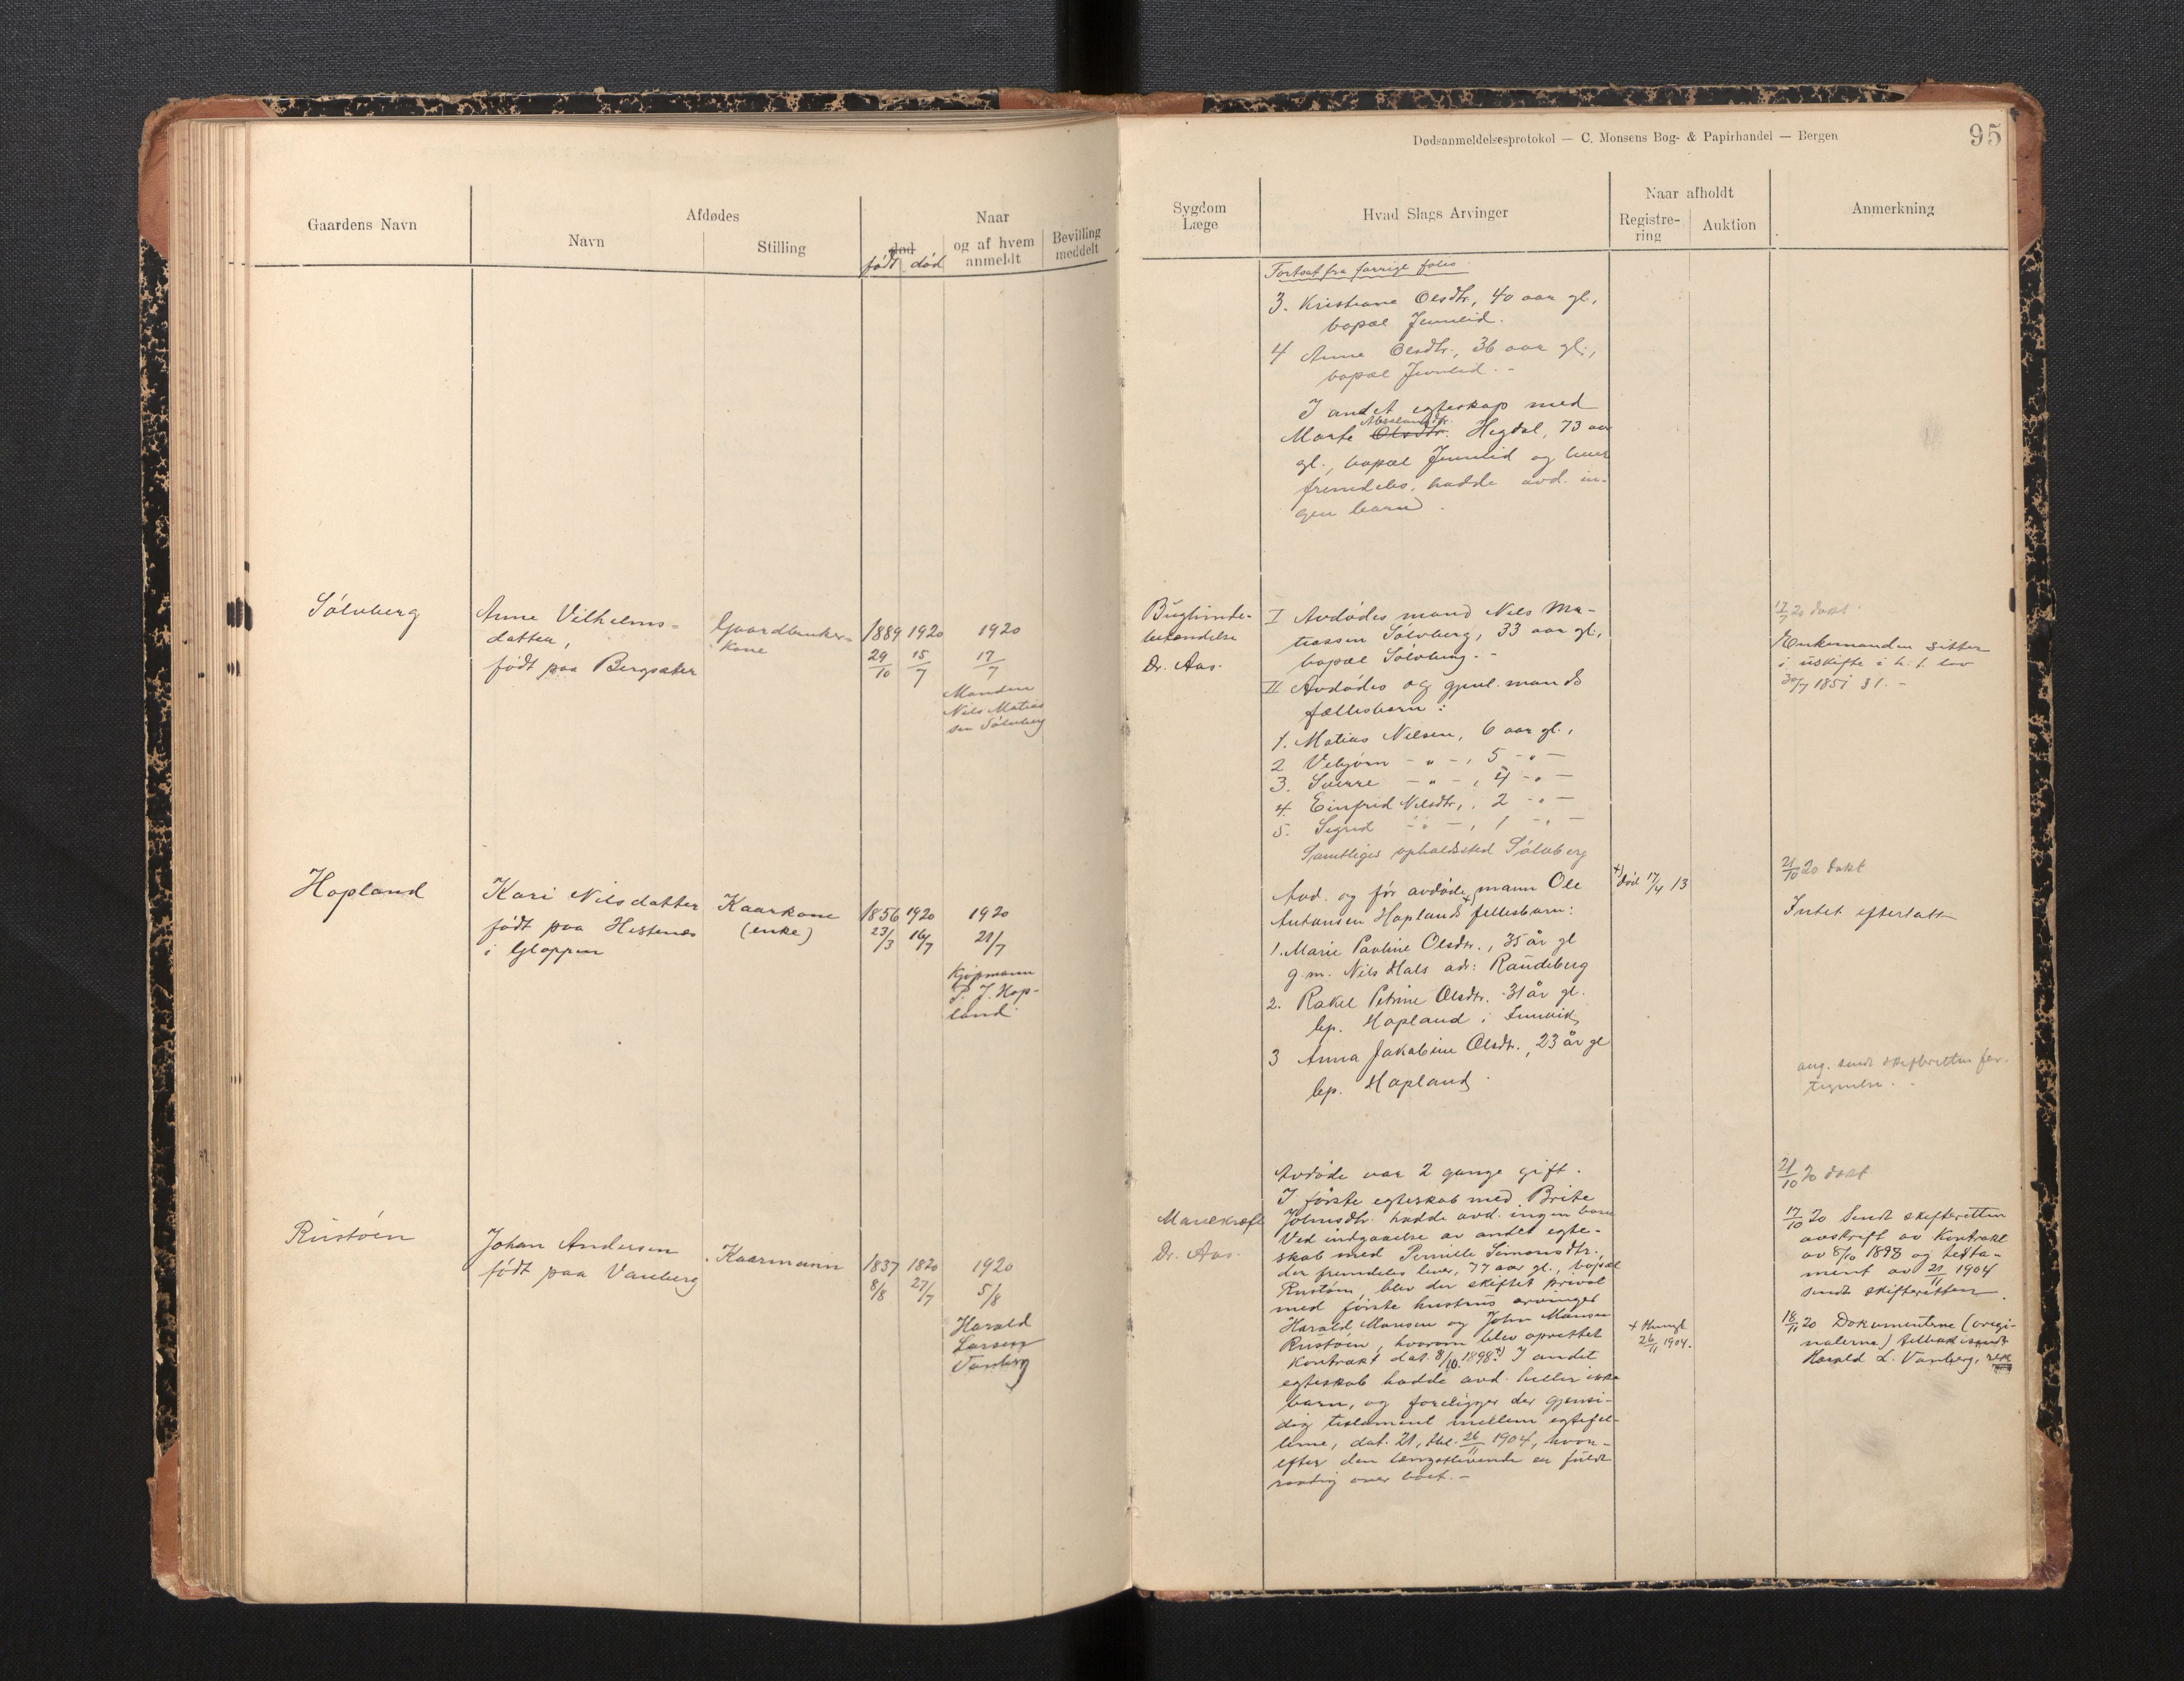 Dødsanmeldelsesprotokol — C. Monsens Bog- & Papirhandel — Bergen
95
Gaardens Navn
Afdødes
Navn
Stilling
død
født død
Naar
og af hvem
anmeldt
Bevilling
meddelt
Sygdom
Læge
Hvad Slags Arvinger
Naar afholdt
Registre-
ring
Auktion
Anmerkning
Fortsat fra forrige folio
3. Kristiane Olsdtr., 40 aar gl.,
bopæl
4 Anne Olsdtr., 36 aar gl.,
bopæl
I andet egteskap med
Absalonsdtr.
Marte Olsdtr. Hegdal, 73 aar
gl., bopæl og lever
fremdeles, hadde avd. in-
gen barn.
Sølvberg
Anne Vilhelms-
datter,
født paa Bergsæter
Gaardbruker-
kone
1889 1920
29/10 15/7
1920
17/7
Manden
Nils Matias
sen Sølvberg
Bughinde-
betændelse
Dr. Aas.
I Avdødes mand Nils Ma-
tiassen Sølvberg, 33 aar gl.,
bopæl Sølvberg. -
II Avdødes og gjenl. mands
fællesbarn:
1. Matias Nilsen, 6 aar gl.,
2 Vebjørn - " - , 5 - " -
3. Sverre - " - , 4 - " -
4. Einfrid Nilsdtr., 2 - " -
5. Sigrid - " - , 1 - " -
Samtliges opholdssted Sølvberg
17/7 20 dokt.
Enkemanden sitter
i uskifte i h. t. lov
30/7 1851 § 1. -
Hopland
Kari Nilsdatter
født paa Hestenes
i Gloppen
Kaarkone
(enke)
1856 1920
23/3 16/7
1920
21/7
Kjøpmann
P. J. Hop-
land.
Avd. og før avdøde mann Ole
Antonsen Hoplands +) fellesbarn:
1. Marie Pauline Olsdtr., 35 år gl
g.m. Nils Hals adr: Raudeberg
2. Rakel Petrine Olsdtr. 31 år gl.
bp. Hopland i Innvik
3 Anna Jakobine Olsdtr., 23 år gl
bp. Hopland.
+) død 17/4 13
21/10 20 dokt
Intet efterlatt
ang. sendt skifteretten for-
tegnelse.
Rustøen
Johan Andersen
født paa Vanberg
Kaarmann
1837 1820
8/8 27/7
1920
5/8
Harald
Larsen
Vanberg
Dr. Aas.
Avdøde var 2 gange gift.
I første egteskab med Brite
Johnsdtr. hadde avd. ingen barn
Ved indgaaelse av andet egte-
skab med Pernille Simonsdtr.,
der fremdeles lever, 77 aar gl., bopæl
Rustøen, blev der skiftet privat
med første hustrus arvinger
Harald Monsen og John Monsen
Rustøen, hvorom blev oprettet
Kontrakt dat. 8/10. 1898. +) I andet
egteskab hadde avd. heller ikke
barn, og foreligger der gjensi-
dig testament mellem egtefel-
lerne, dat. 21, tbl. 26/11 1904, hvor-
efter den længstlevende er fuldt
raadig over boet. -
26/11 1904.
21/10 20 dokt
17/10 20 Sendt skifteretten
avskrift av Kontrakt
av 8/10 1898 og testa-
ment av 21/11 1904
sendt skifteretten.
18/11 20 Dokumenterne (origi-
nalerne) tilbakesendt
Harald L. Vanberg,